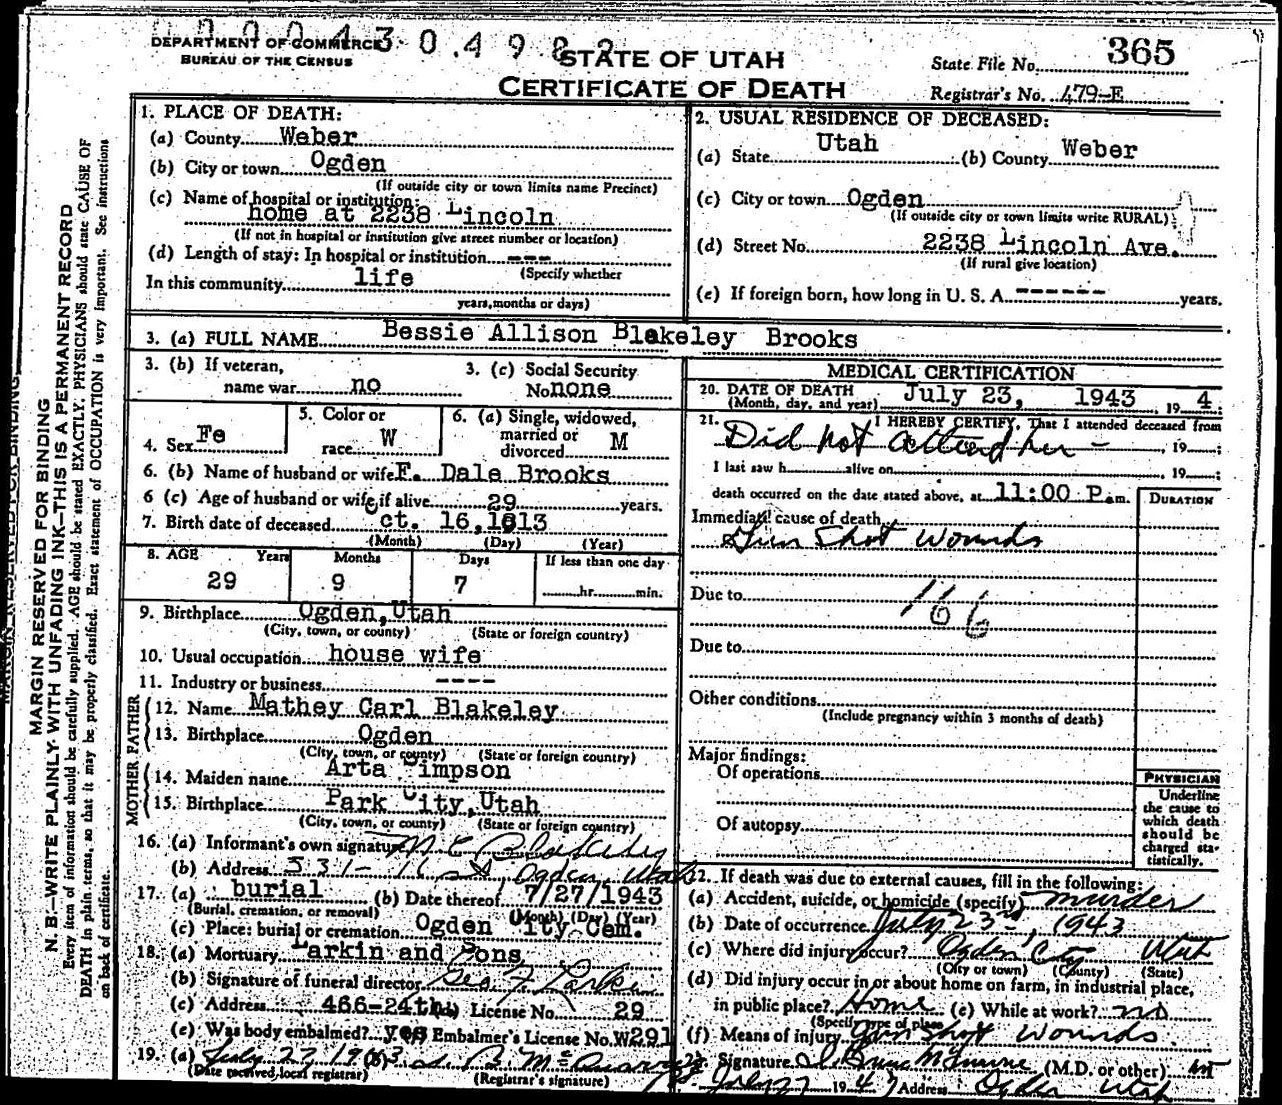 0 0 0 4 3 0 4 9 8 2
DEPARTMENT OF COMMERCE
BUREAU OF THE CENSUS
STATE OF UTAH
CERTIFICATE OF DEATH
State File No. 365
Registrar's No. 479-E
MARGIN RESERVED FOR BINDING
N. B.—WRITE PLAINLY WITH UNFADING INK—THIS IS A PERMANENT RECORD
Every item of information should be carefully supplied. AGE should be stated EXACTLY. PHYSICIANS should state CAUSE OF
DEATH in plain terms, so that it may be properly classified. Exact statement of OCCUPATION is very important. See instructions
on back of certificate.
1. PLACE OF DEATH:
(a) County Weber
(b) City or town Ogden
(If outside city or town limits name Precinct)
(c) Name of hospital or institution:
home at 2238 Lincoln
(If not in hospital or institution give street number or location)
(d) Length of stay: In hospital or institution ---
(Specify whether
In this community life
years, months or days)
2. USUAL RESIDENCE OF DECEASED:
(a) State Utah (b) County Weber
(c) City or town Ogden
(If outside city or town limits write RURAL)
(d) Street No. 2238 Lincoln Ave.
(If rural give location)
(e) If foreign born, how long in U. S. A. ------ years.
3. (a) FULL NAME Bessie Allison Blakeley Brooks
3. (b) If veteran,
name war no
3. (c) Social Security
No. none
4. Sex Fe
5. Color or
race W
6. (a) Single, widowed,
married or
divorced M
6. (b) Name of husband or wife F. Dale Brooks
6 (c) Age of husband or wife if alive 29 years.
7. Birth date of deceased Oct. 16, 1913
(Month) (Day) (Year)
8. AGE Years Months Days If less than one day
29 9 7 hr. min.
9. Birthplace Ogden, Utah
(City, town, or county) (State or foreign country)
10. Usual occupation house wife
11. Industry or business ----
FATHER
12. Name Mathey Carl Blakeley
13. Birthplace Ogden
(City, town, or county) (State or foreign country)
MOTHER
14. Maiden name Arta Simpson
15. Birthplace Park City, Utah
(City, town, or county) (State or foreign country)
16. (a) Informant's own signature M C Blakeley
(b) Address 331- 16 st Ogden, Utah
17. (a) burial (b) Date thereof 7/27/1943
(Burial, cremation, or removal) (Month) (Day) (Year)
(c) Place: burial or cremation Ogden City Cem.
18. (a) Mortuary Larkin and Sons
(b) Signature of funeral director Geo F Larkin
(c) Address 466-24th (d) License No. 29
(e) Was body embalmed? yes Embalmer's License No. W291
19. (a) July 27 1943 (b)
(Date received local registrar) (Registrar's signature)
MEDICAL CERTIFICATION
20. DATE OF DEATH July 23, 1943, 19 4
(Month, day, and year)
21. I HEREBY CERTIFY, That I attended deceased from
Did not attend her - , 19 ;
I last saw h alive on , 19 ;
death occurred on the date stated above, at 11:00 P.m.
DURATION
Immediate cause of death
Gun Shot Wounds
Due to 166
Due to
Other conditions
(Include pregnancy within 3 months of death)
Major findings:
Of operations
Of autopsy
PHYSICIAN
Underline
the cause to
which death
should be
charged sta-
tistically.
22. If death was due to external causes, fill in the following:
(a) Accident, suicide, or homicide (specify) Murder
(b) Date of occurrence July 23rd, 1943
(c) Where did injury occur? Ogden City Utah
(City or town) (County) (State)
(d) Did injury occur in or about home on farm, in industrial place,
in public place? Home (e) While at work? no
(Specify type of place)
(f) Means of injury Gun Shot Wounds
Signature (M.D. or other)
July 27 194 Address Ogden Utah